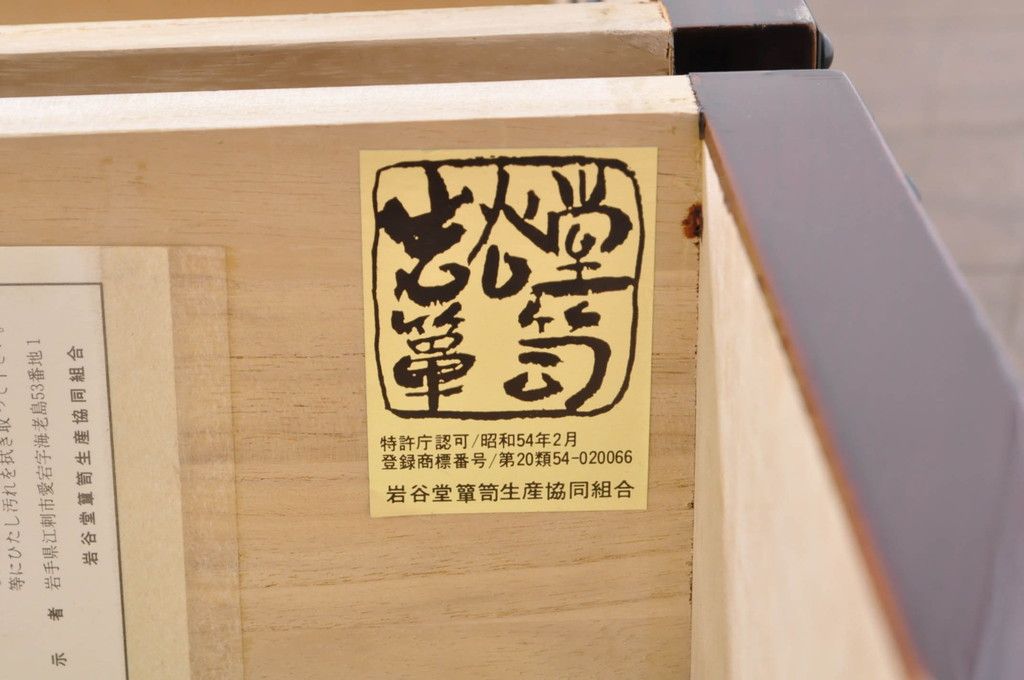 岩谷堂
簞笥
特許庁認可/昭和54年2月
登録商標番号/第20類54-020066
岩谷堂簞笥生産協同組合
等にひたし汚れを拭き取って下さい。
示 者 岩手県江刺市愛宕字海老島53番地1
岩谷堂簞笥生産協同組合